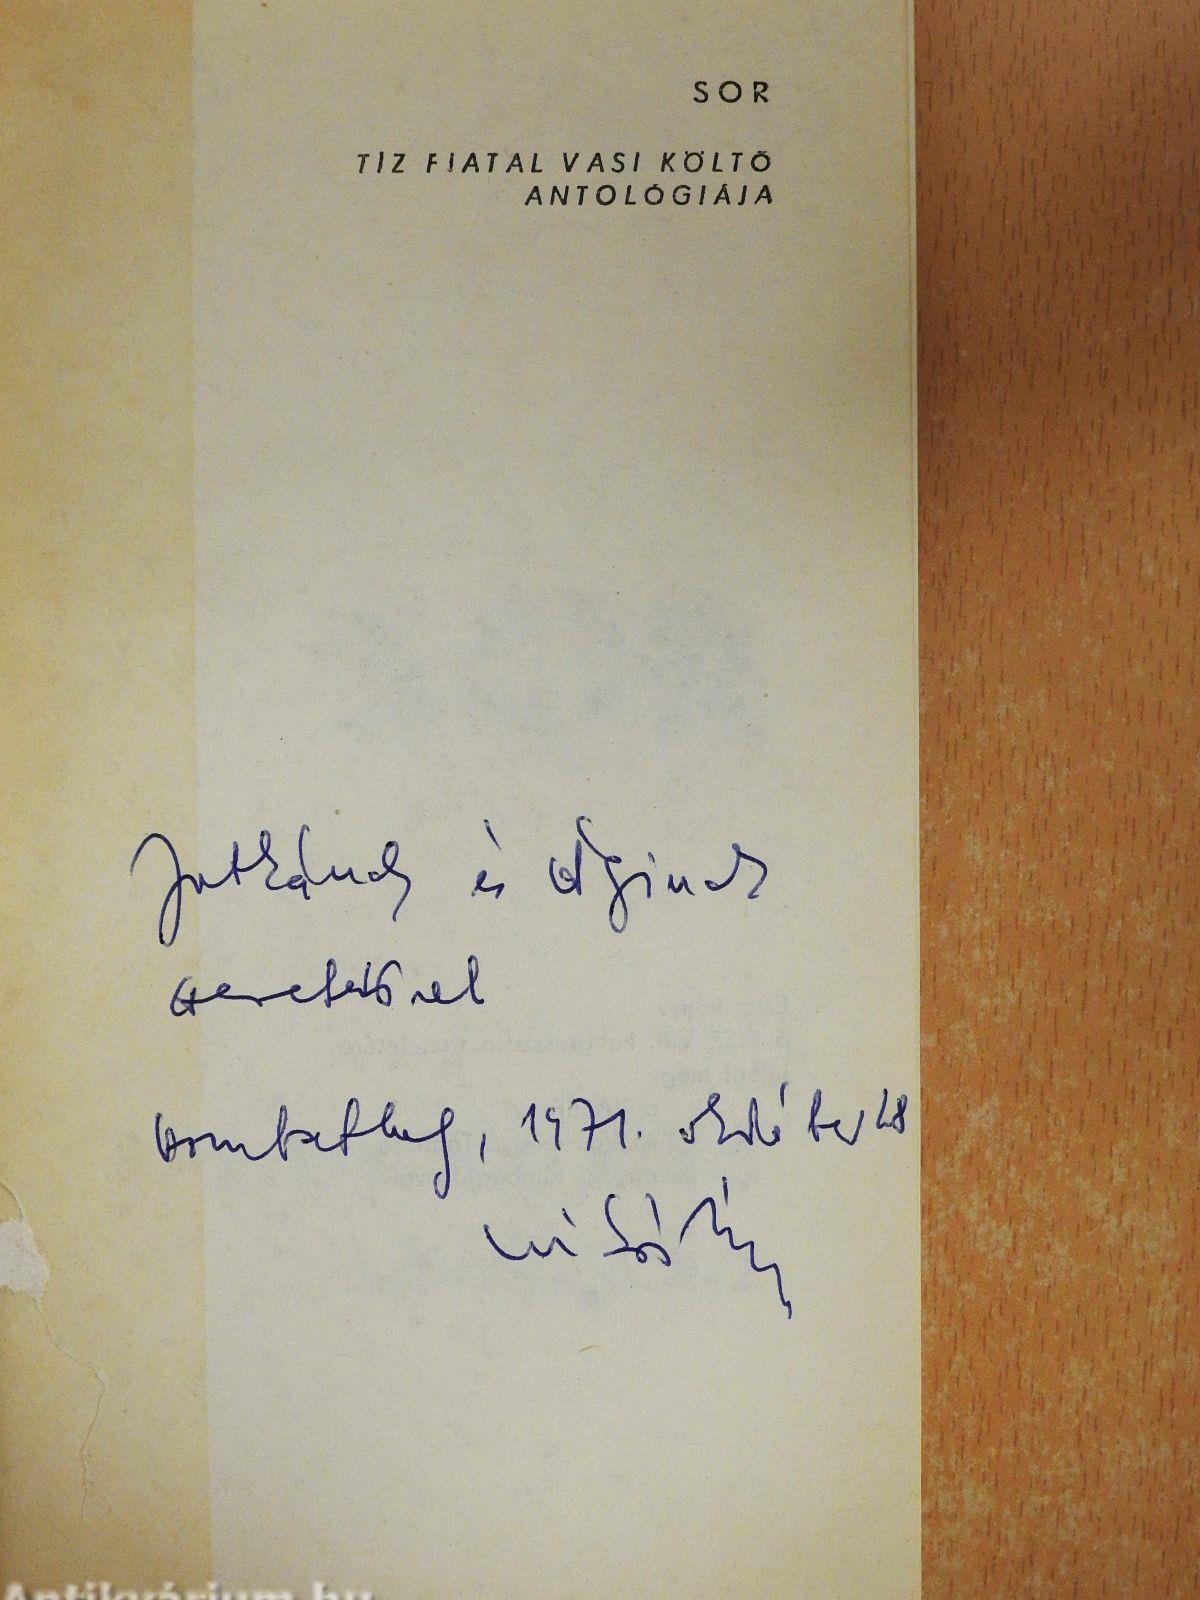 SOR
TIZ FIATAL VASI KÖLTŐ
ANTOLÓGIÁJA
és Áginak
szeretettel
Szombathely, 1971. október 28
Antikvárium.hu